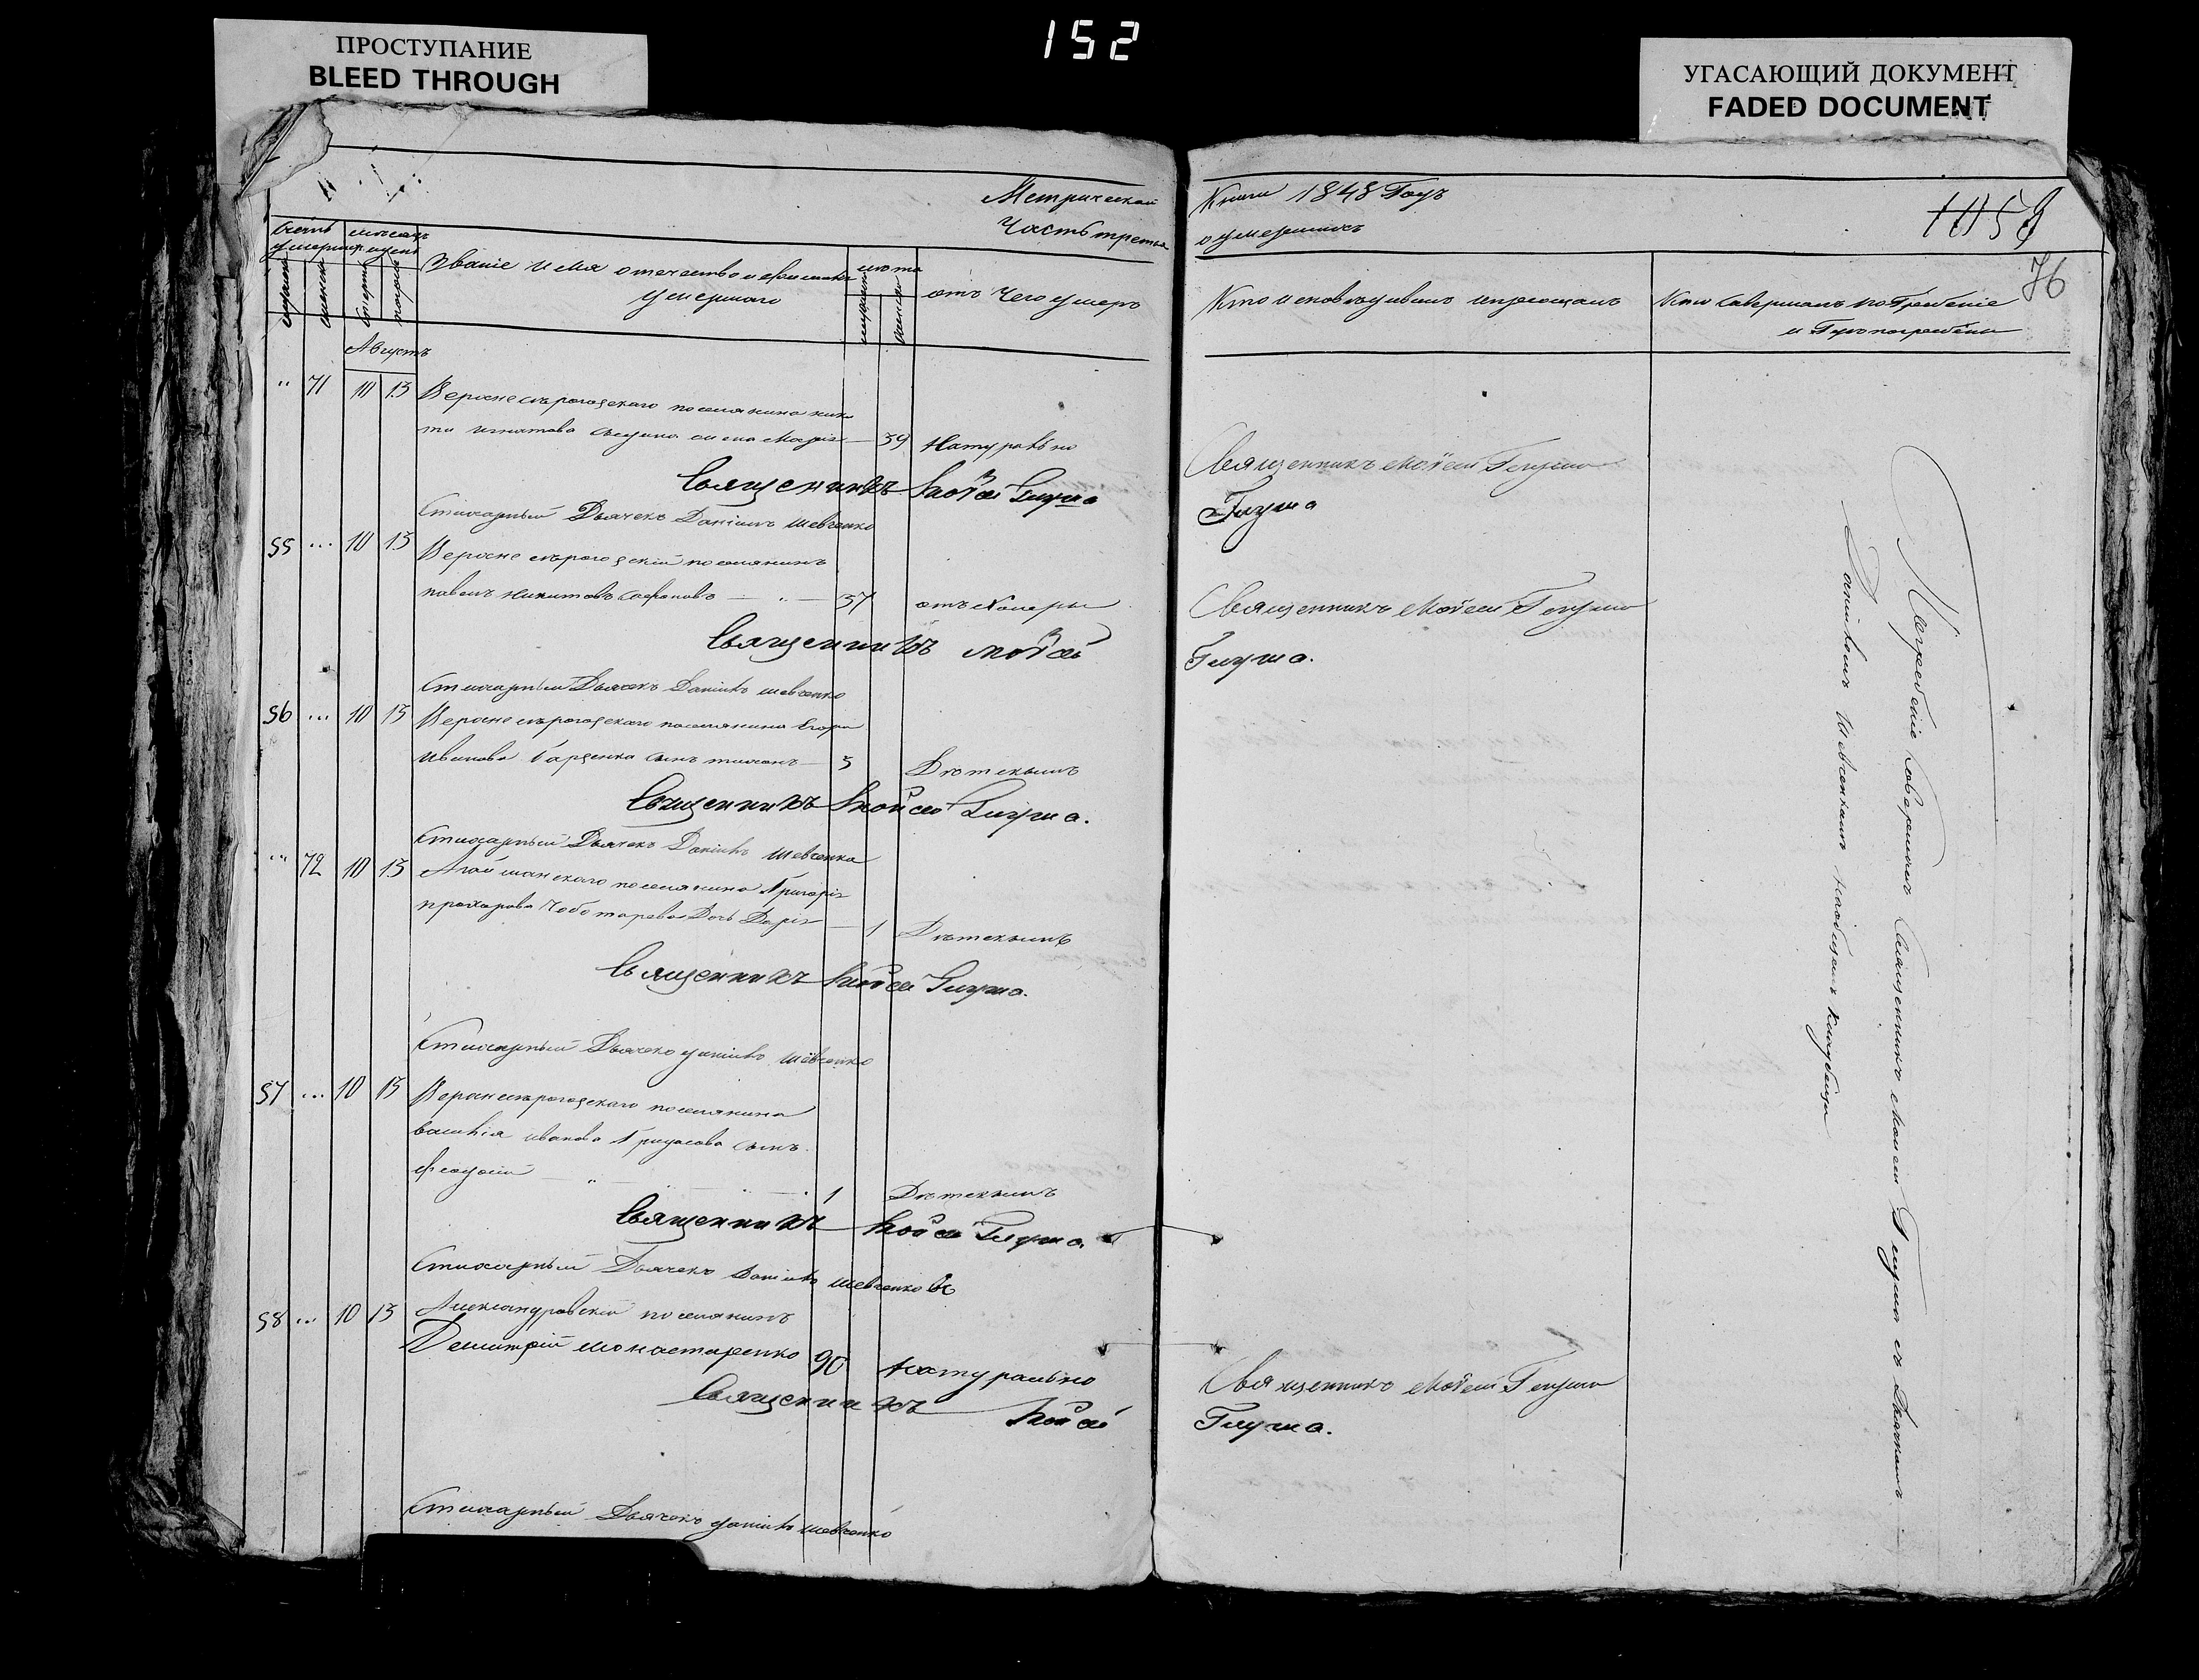 ПРОСТУПАНИЕ
BLEED THROUGH
152
УГАСАЮЩИЙ ДОКУМЕНТ
FADED DOCUMENT
Метрической
Часть третья
Книги 1848 Году
о умершихъ
1058
76
Счетъ умершихъ
мужеска
женска
месяцъ и день
смерти
погреб
Званіе имя отечество и фамилія
умершаго
лета
мужеска
женска
отъ чего умеръ
Кто исповедывалъ и приощалъ
Кто совершалъ погребеніе
и где погребены
Августъ
" 71 10 13 Верхнесерогоскаго поселянина ники
ты Игнатова жена Марія — 39 Натурально
Священникъ Мойсей Глуша
Стихарный Дьячекъ Даніилъ Шевченко
Священникъ Мойсей Глуша
Глуша
55 ... 10 13 Верхнесерогоскій поселянинъ
павелъ Никитовъ Сафоновъ — " — 37 отъ Холеры
Священникъ Мойсей
Священникъ Мойсей Глуша
Глуша.
Стихарный Дьячекъ Даніилъ Шевченко
56 ... 10 13 Верхнесерогоскаго поселянина Егора
Иванова сынъ тихонъ — 3 Детскимъ
Священникъ Мойсей Глуша.
Стихарный Дьячекъ Даніилъ Шевченко
" 72 10 13 Агайманскаго поселянина Григорія
прохорова Чоботарева Дочь Дарія — 1 Детскимъ
Священникъ Мойсей Глуша.
Стихарный Дьячекъ Даніилъ Шевченко
57 ... 10 13 Верхнесерогоскаго поселянина
василія иванова Гридасова сынъ
Феодосій — " — 1 Детскимъ
Священникъ Мойсей Глуша.
Стихарный Дьячекъ Даніилъ Шевченко
58 ... 10 13 Александровскій поселянинъ
Демитрій Монастаренко 90 Натурально
Священникъ Мойсей
Священникъ Мойсей Глуша
Глуша.
Стихарный Дьячекъ Даніилъ Шевченко
Погребеніе совершилъ Священникъ Мойсей Глуша съ Дьячкомъ
Даніиломъ Шевченкомъ на общемъ кладбище